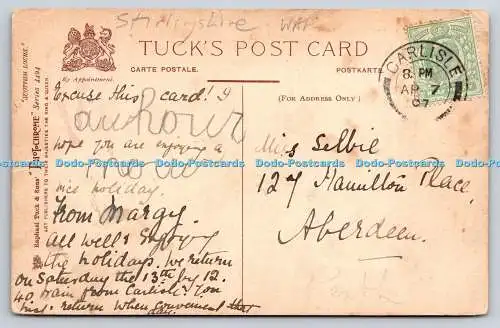 Stirlingshire WAP
TUCK'S POST CARD
By Appointment.
CARTE POSTALE.
POSTKARTE.
(FOR ADDRESS ONLY.)
"SCOTTISH LOCHS." Series 4494
Raphael Tuck & Sons'
ART PUBLISHERS TO THEIR MAJESTIES THE KING & QUEEN
CARLISLE
8. PM
AP 7
07
Excuse this card! I
hope you are enjoying a
nice holiday.
From Margy.
all well & Enjoying
the holidays. We return
on Saturday the 13th by 12.
40 train from Carlisle. You
return when convenient that
day.
Miss Selbie
127 Hamilton Place,
Aberdeen.
Dodo-Postcards Dodo-Postcards Dodo-Postcards Dodo-Postcards Dodo-Postcards Dodo-Postcards